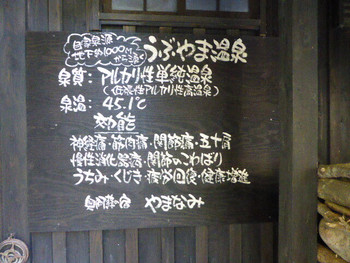 自家泉源
地下約1000mから湧く
うぶやま温泉
泉質：アルカリ性単純温泉
（低張性アルカリ性高温泉）
泉温：45.1℃
効能
神経痛・筋肉痛・関節痛・五十肩
慢性消化器病・関節のこわばり
うちみ・くじき・疲労回復・健康増進
やまなみ